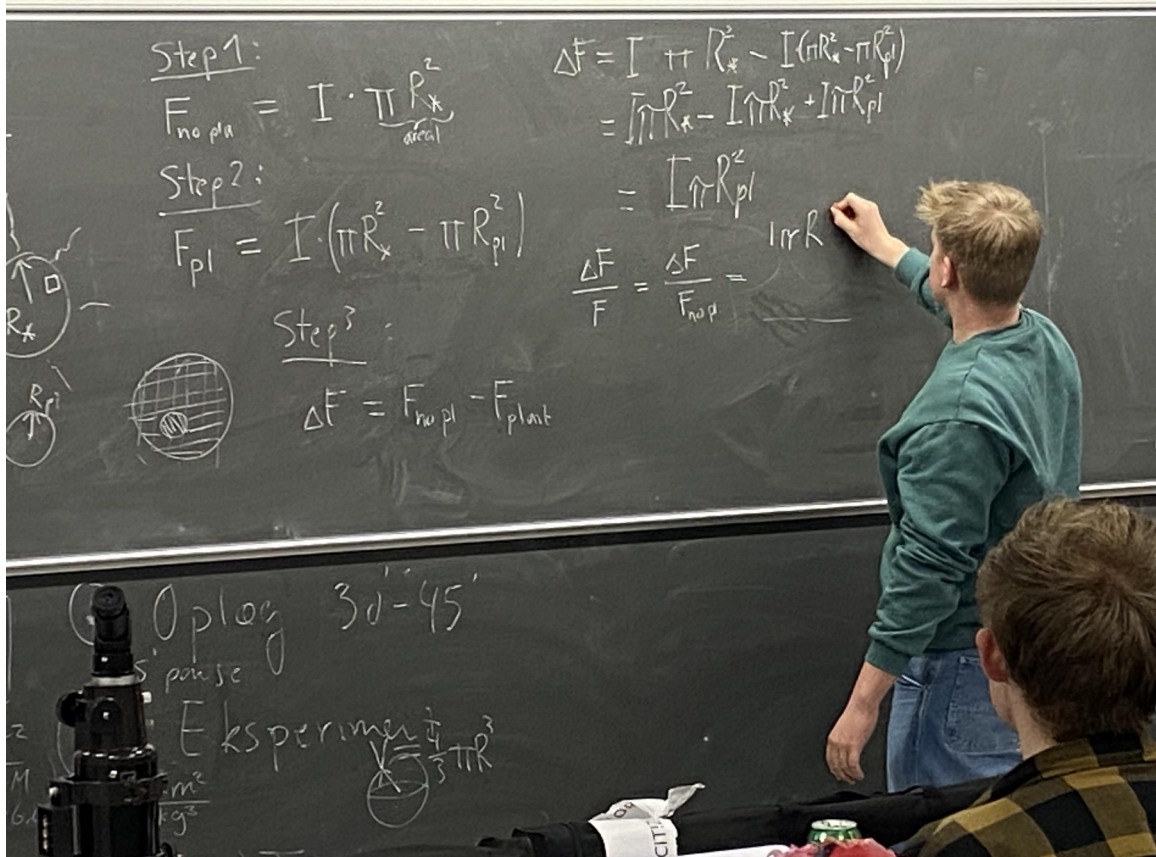 Step 1:
F_no pla = I · π R_*^2
areal
Step 2:
F_pl = I·(πR_*^2 − πR_pl^2)
Step 3:
ΔF = F_no pl − F_planet
R_*
R_pl
ΔF = I π R_*^2 − I(πR_*^2 − πR_pl^2)
= IπR_*^2 − IπR_*^2 + IπR_pl^2
= IπR_pl^2
IπR
ΔF/F = ΔF/F_no pl =
Oplæg 30'-45'
pause
Eksperiment
V = 4/3 πR^3
m^2/kg^3